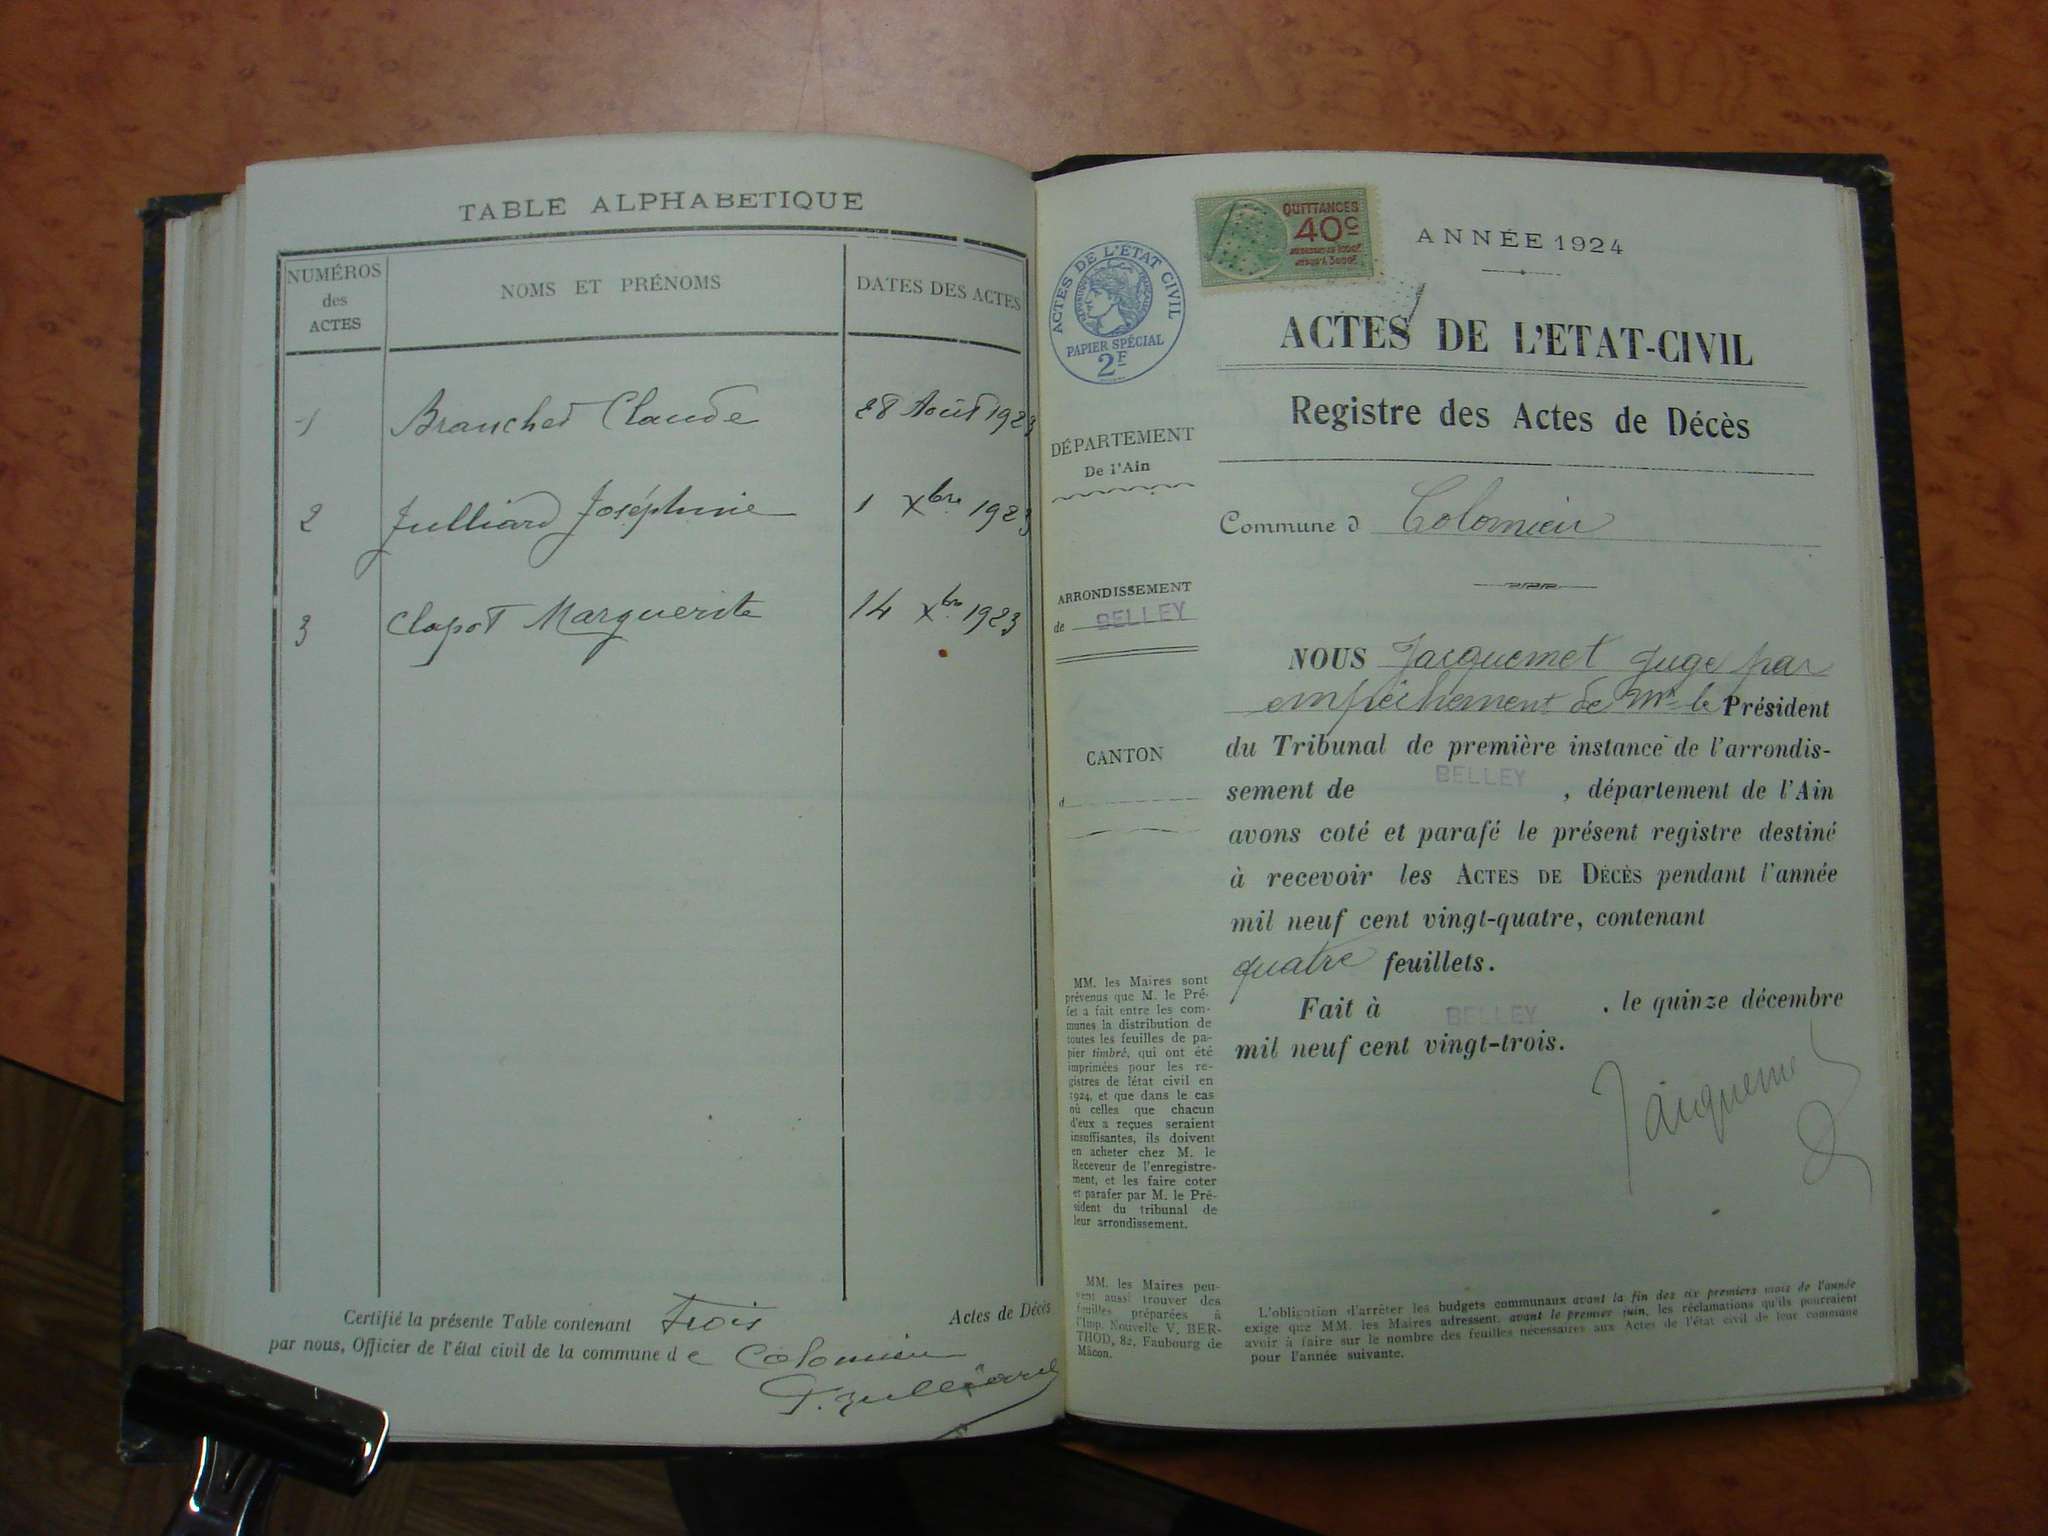 TABLE ALPHABETIQUE
NUMÉROS
des
ACTES
NOMS ET PRÉNOMS
DATES DES ACTES
1 Branchet Claude 28 Août 1923
2 Julliard Joséphine 1 Xbre 1923
3 Clapot Marguerite 14 Xbre 1923
Certifié la présente Table contenant trois Actes de Décès
par nous, Officier de l'état civil de la commune de Colomieu
F. Julliard
QUITTANCES
40c
JUSQU'A 3000F
ACTES DE L'ETAT CIVIL
PAPIER SPÉCIAL
2F
DÉPARTEMENT
De l'Ain
ARRONDISSEMENT
de BELLEY
CANTON
d
MM. les Maires sont
prévenus que M. le Pré-
fet a fait entre les com-
munes la distribution de
toutes les feuilles de pa-
pier timbré, qui ont été
imprimées pour les re-
gistres de létat civil en
1924, et que dans le cas
où celles que chacun
d'eux a reçues seraient
insuffisantes, ils doivent
en acheter chez M. le
Receveur de l'enregistre-
ment, et les faire coter
et parafer par M. le Pré-
sident du tribunal de
leur arrondissement.
MM. les Maires peu-
vent aussi trouver des
feuilles préparées à
l'Imp. Nouvelle V. BER-
THOD, 82, Faubourg de
Mâcon.
ANNÉE 1924
ACTES DE L'ETAT-CIVIL
Registre des Actes de Décès
Commune d Colomieu
NOUS Jacquemet Juge par
empêchement de Mr le Président
du Tribunal de première instance de l'arrondis-
sement de BELLEY, département de l'Ain
avons coté et parafé le présent registre destiné
à recevoir les ACTES DE DÉCÈS pendant l'année
mil neuf cent vingt-quatre, contenant
quatre feuillets.
Fait à BELLEY, le quinze décembre
mil neuf cent vingt-trois.
Jacquemet
L'obligation d'arrêter les budgets communaux avant la fin des six premiers mois de l'année
exige que MM. les Maires adressent, avant le premier juin, les réclamations qu'ils pourraient
avoir à faire sur le nombre des feuilles nécessaires aux Actes de l'état civil de leur commune
pour l'année suivante.